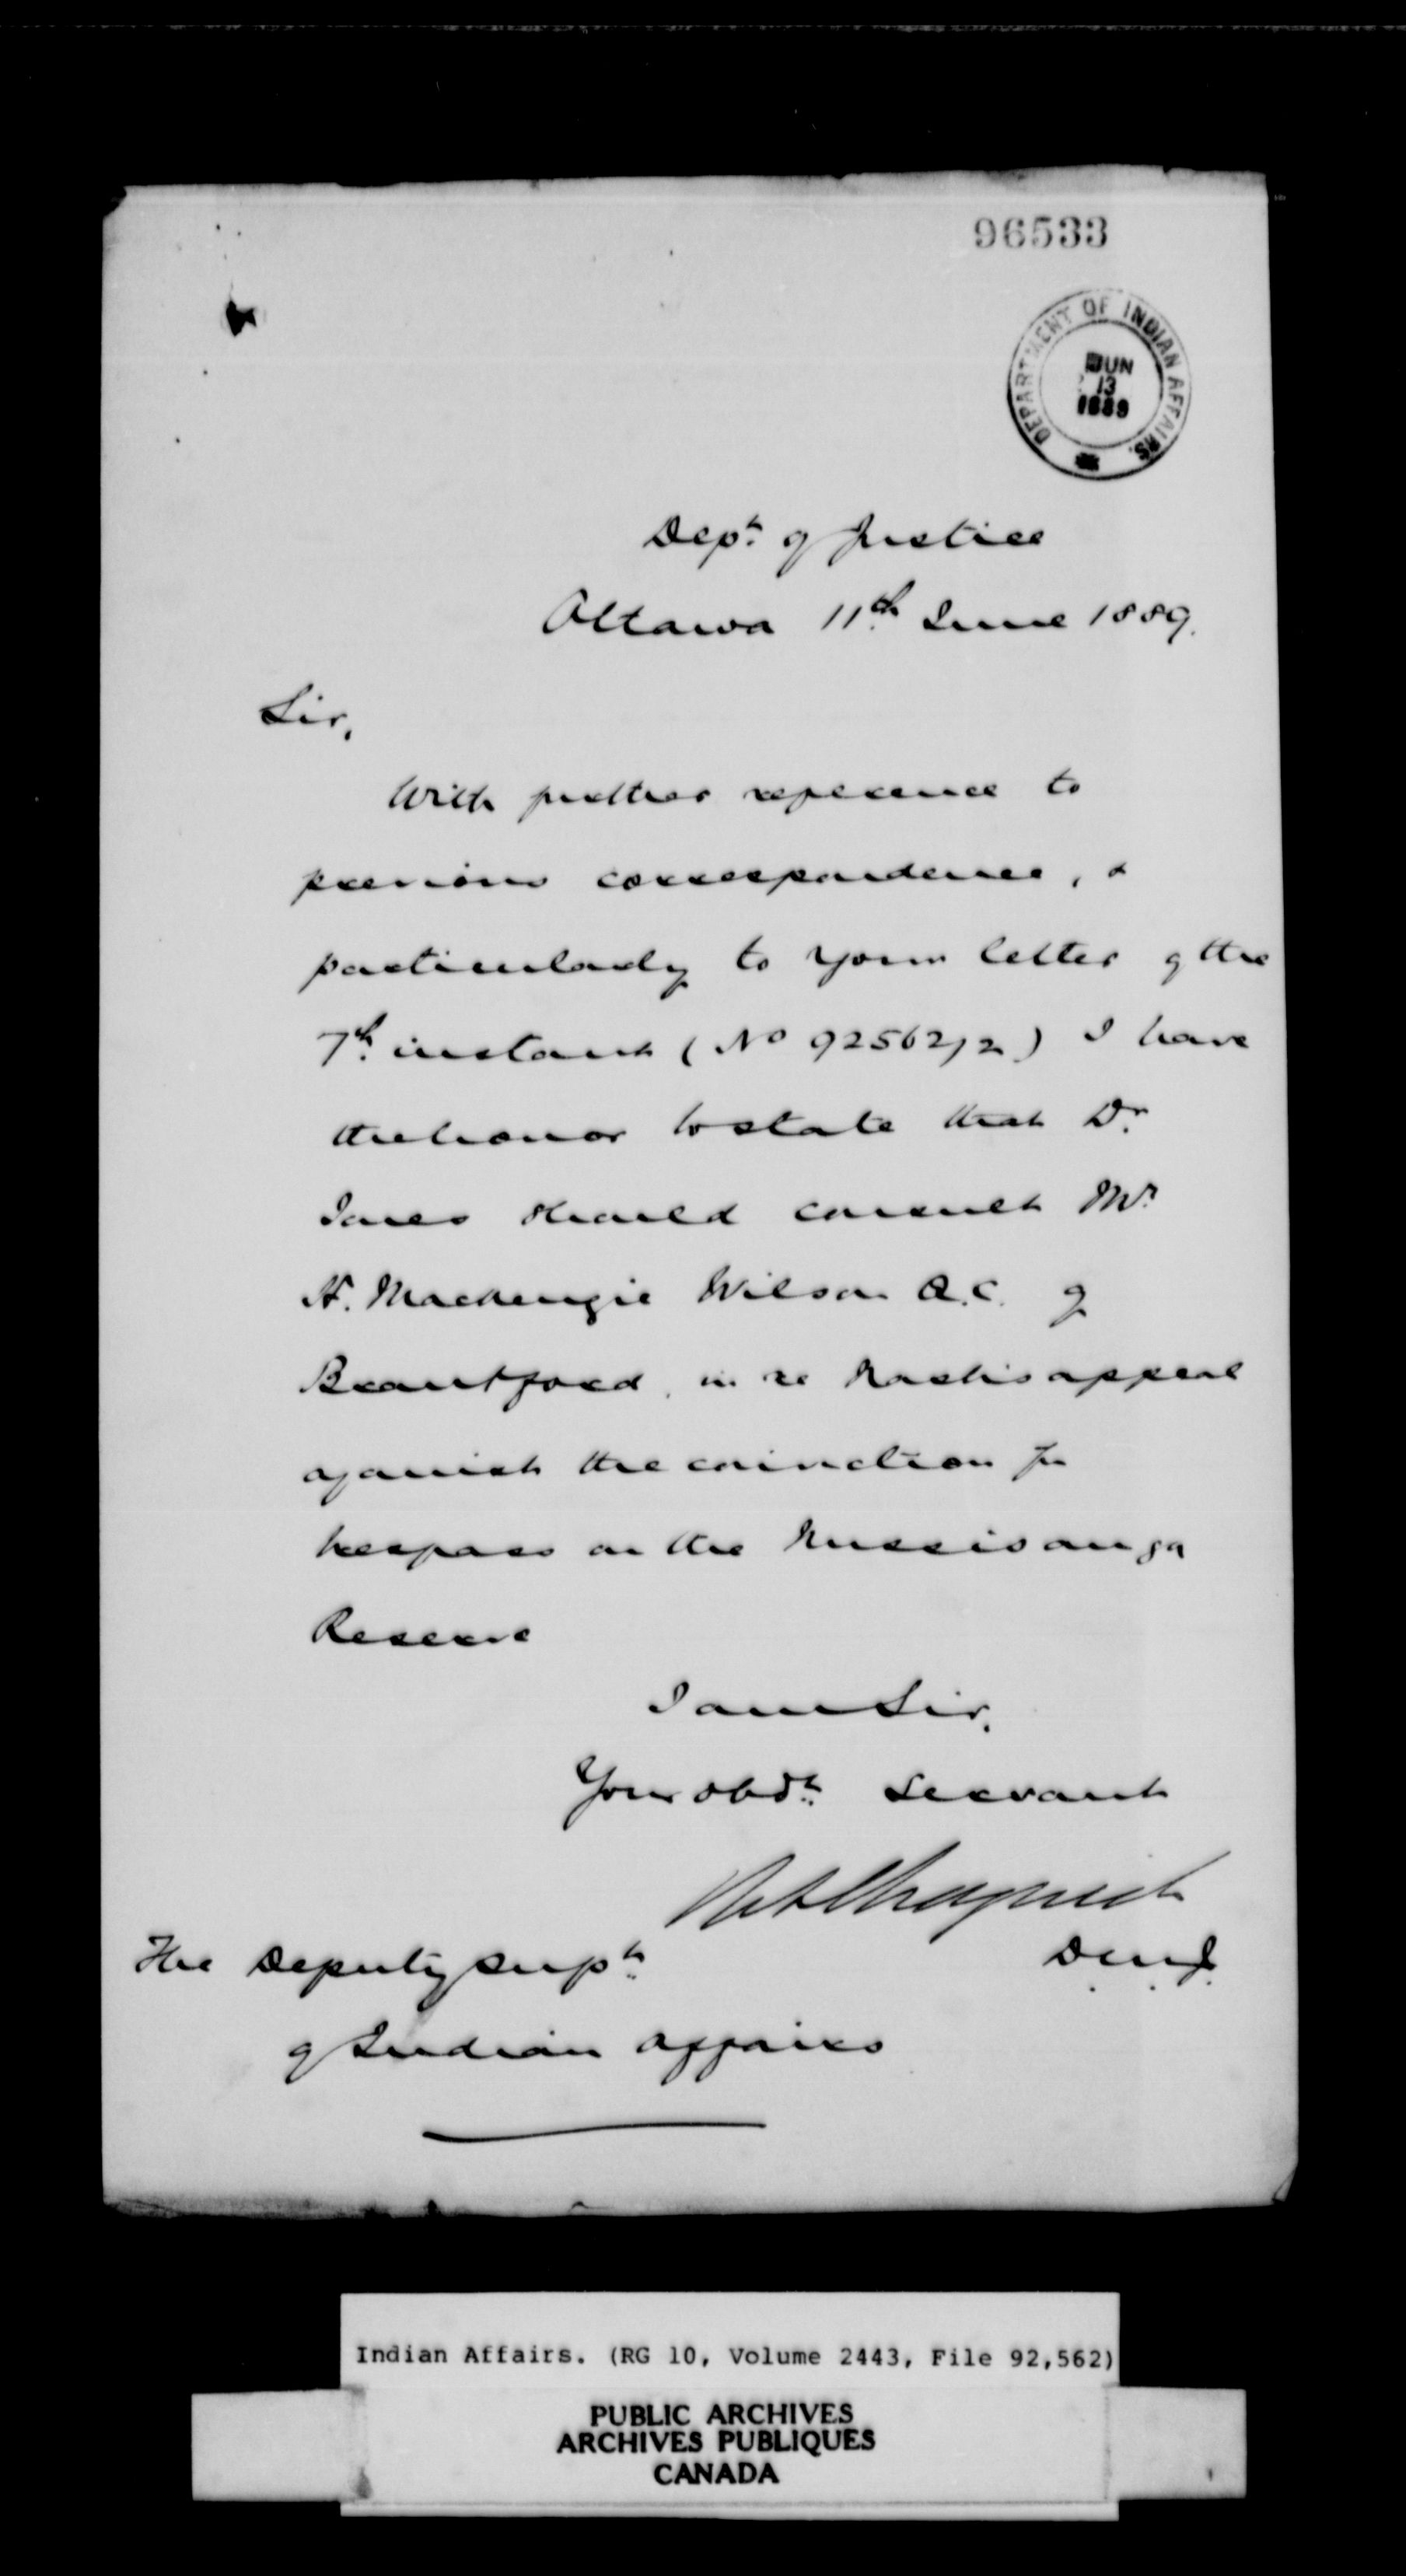 96533
DEPARTMENT OF INDIAN AFFAIRS.
JUN
13
1889
Dept. of Justice
Ottawa 11th June 1889.
Sir,
With further reference to
previous correspondence, &
particularly to your letter of the
7th instant (No 92562/2) I have
the honor to state that Dr.
Jones should consult Mr
H. Mackenzie Wilson Q.C. of
Brantford, in re appeal
against the conviction for
trespass on the Mississauga
Reserve
I am Sir,
Your obdt. servant
D.M.J.
The Deputy Supt.
of Indian Affairs
Indian Affairs. (RG 10, Volume 2443, File 92,562)
PUBLIC ARCHIVES
ARCHIVES PUBLIQUES
CANADA